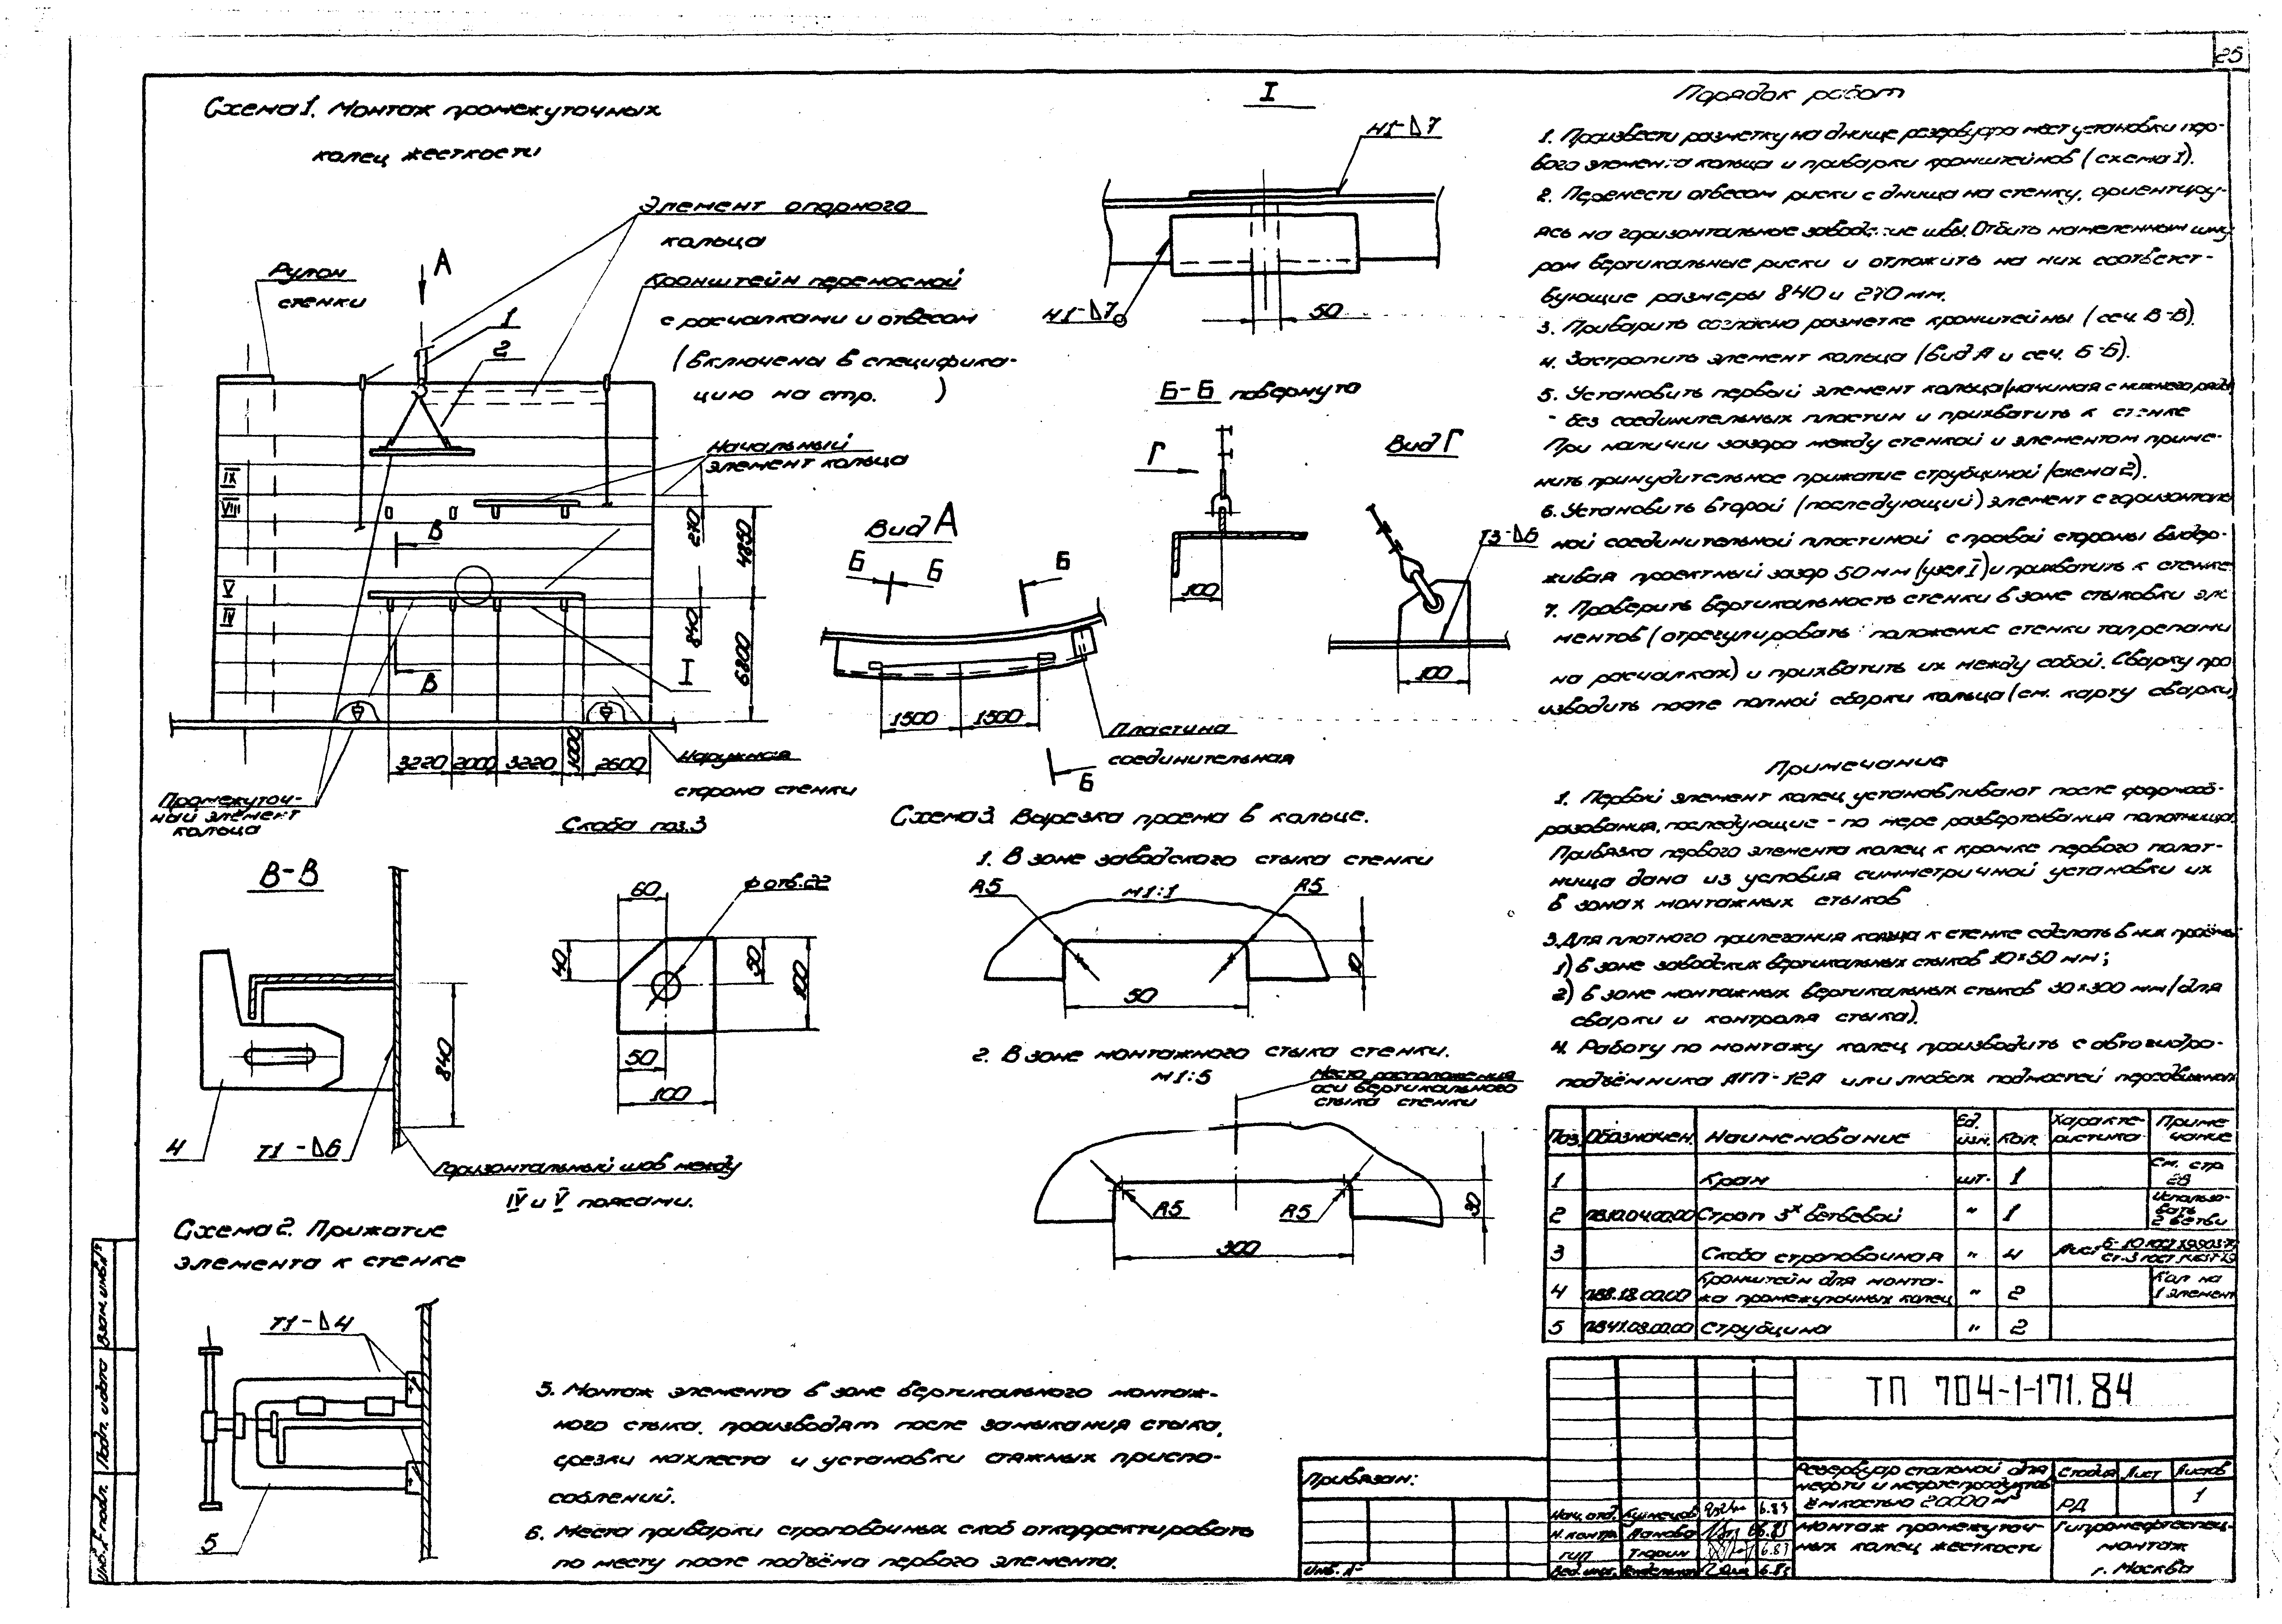 25
Схема 1. Монтаж промежуточных
колец жесткости
Элемент опорного
кольца
Рулон
стенки
А
1
2
Кронштейн переносной
с расчалками и отвесом
(включены в специфика-
цию на стр. )
Начальный
элемент кольца
IX
VIII
V
IV
В
В
270
4850
840
6800
I
3220
2000
3220
1000
2600
Наружная
сторона стенки
Промежуточ-
ный элемент
кольца
I
Н1-△7
Н1-△7
50
Б-Б повернуто
Г
100
Вид Г
Т3-△6
100
Вид А
Б
Б
Б
1500
1500
Пластина
соединительная
Б
В-В
4
Т1-△6
840
Горизонтальный шов между
IV и V поясами.
Скоба поз.3
60
Ф отв.22
40
50
100
50
100
Схема 3. Вырезка проема в кольце.
1. В зоне заводского стыка стенки
М1:1
R5
R5
10
50
2. В зоне монтажного стыка стенки.
М1:5
Место расположения
оси вертикального
стыка стенки
R5
R5
30
300
Схема 2. Прижатие
элемента к стенке
Т1-△4
5
5. Монтаж элемента в зоне вертикального монтаж-
ного стыка, производят после замыкания стыка,
срезки нахлеста и установки стяжных приспо-
соблений.
6. Места приварки строповочных скоб откорректировать
по месту после подъёма первого элемента.
Порядок работ
1. Произвести разметку на днище резервуара мест установки пер-
вого элемента кольца и приварки кронштейнов (схема 1).
2. Перенести отвесом риски с днища на стенку, ориентиру-
ясь на горизонтальные заводские швы. Отбить намеленным шну
ром вертикальные риски и отложить на них соответст-
вующие размеры 840 и 270 мм.
3. Приварить согласно разметке кронштейны (сеч. В-В).
4. Застропить элемент кольца (вид А и сеч. Б-Б).
5. Установить первый элемент кольца (начиная с нижнего ряда)
- без соединительных пластин и прихватить к стенке
При наличии зазора между стенкой и элементом приме-
нить принудительное прижатие струбциной (схема 2).
6. Установить второй (последующий) элемент с горизонталь
ной соединительной пластиной с правой стороны выдер-
живая проектный зазор 50 мм (узел I) и прихватить к стенке
7. Проверить вертикальность стенки в зоне стыковки эле
ментов (отрегулировать положение стенки талрепами
на расчалках) и прихватить их между собой. Сварку про
изводить после полной сборки кольца (см. карту сварки)
Примечание
1. Первый элемент колец устанавливают после формооб-
разования, последующие - по мере развертывания полотнища.
Привязка первого элемента колец к кромке первого полот-
нища дана из условия симметричной установки их
в зонах монтажных стыков
3. Для плотного прилегания кольца к стенке сделать в них проёмы
1) в зоне заводских вертикальных стыков 10×50 мм;
2) в зоне монтажных вертикальных стыков 30×300 мм (для
сварки и контроля стыка).
4. Работу по монтажу колец производить с автогидро-
подъёмника АГП-12А или любых подмостей передвижных
Поз. Обозначен. Наименование Ед. изм. Кол. Характе-ристика Приме-чание
1 Кран шт. 1 См. стр 28
2 ПВ10.04.00.00 Строп 3х ветвевой " 1 Использо-вать 2 ветви
3 Скоба строповочная " 4 Лист
4 ПВ8.18.00.00 Кронштейн для монта-жа промежуточных колец " 2 Кол на 1 элемент
5 ПВ41.03.00.00 Струбцина " 2
ТП 704-1-171.84
Резервуар стальной для
нефти и нефтепродуктов
ёмкостью 20000 м³
Стадия Лист Листов
РД 1
Монтаж промежуточ-
ных колец жесткости
Гипронефтеспец-
монтаж
г. Москва
Привязан:
Инв. №
Нач. отд. Кузнецов 6.83
Н. контр. Панова 06.83
ГИП Тюрин 6.83
Вед. инж. 6.83
Взам. инв. №
Подп. и дата
Инв. № подл.